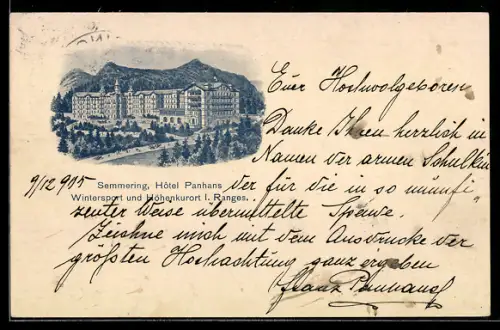 Euer Hochwolgeboren
Danke Ihnen herzlich in
Namen der armen Schulkin
9/12 905
Semmering, Hôtel Panhans
der für die in so munifi
Wintersport und Höhenkurort I. Ranges.
zenter Weise übermittelte Spende.
Zeichne mich mit dem Ausdrucke der
größten Hochachtung ganz ergeben
Franz Panhans